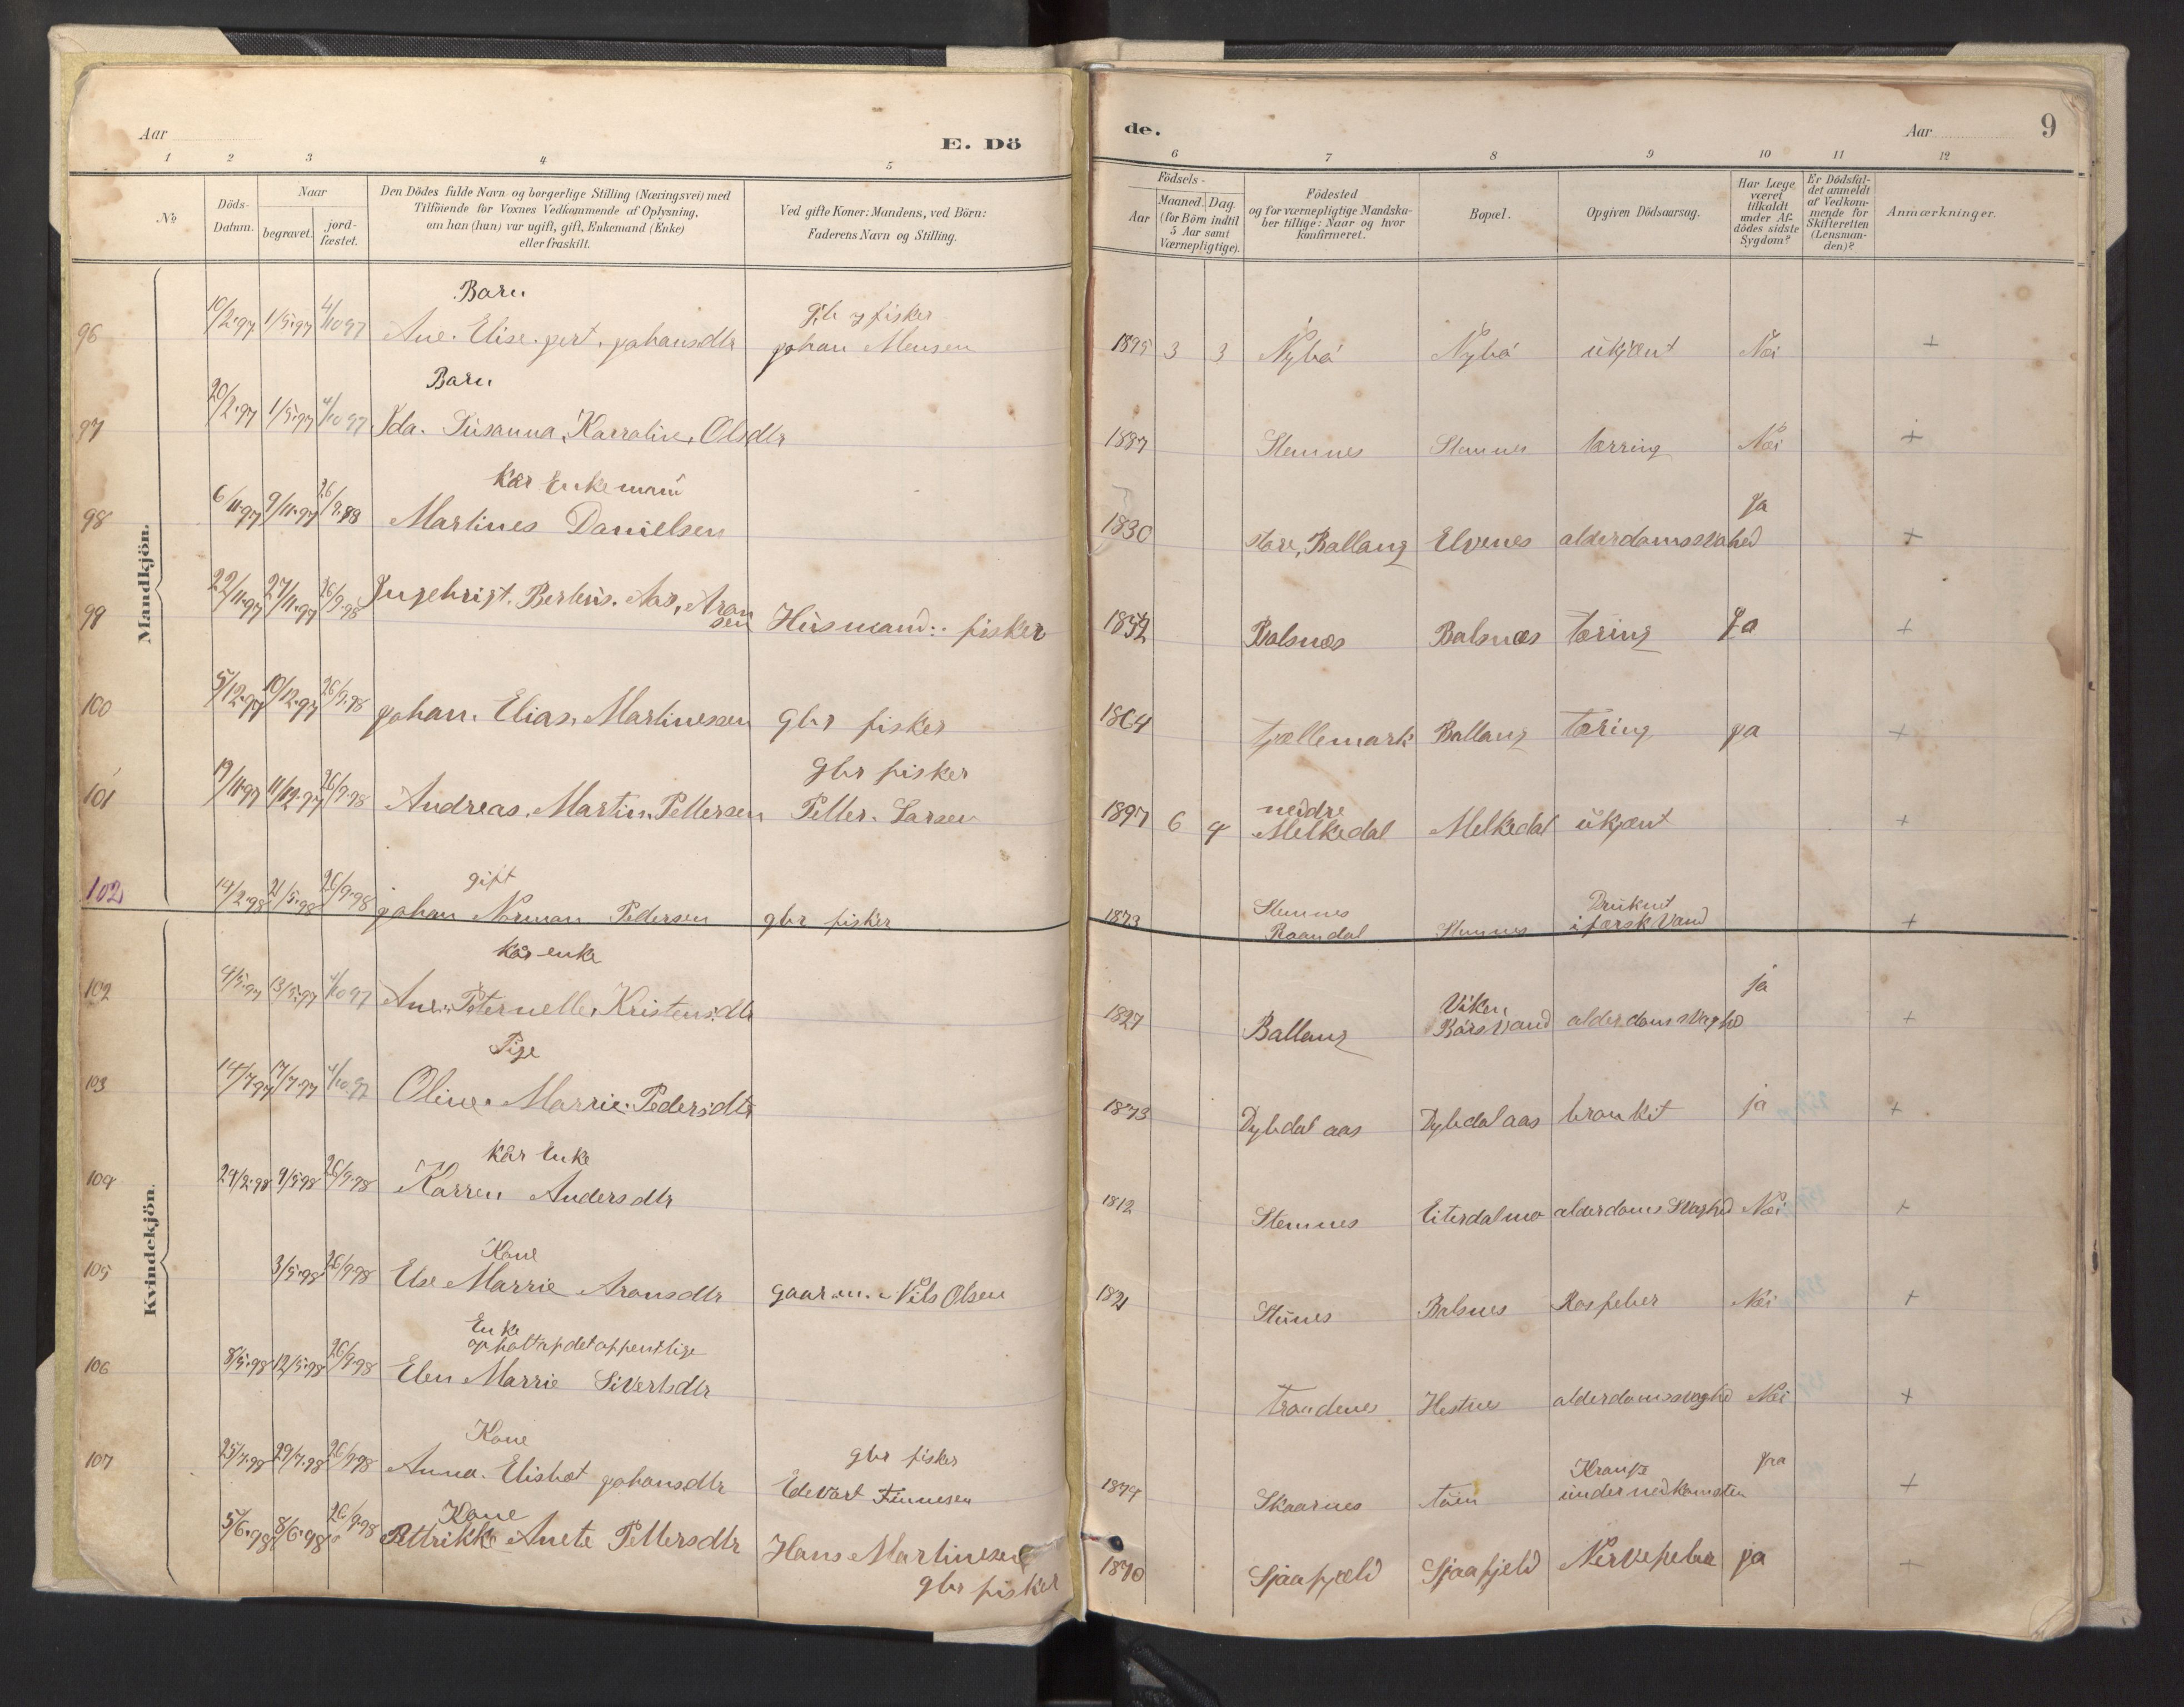 Aar
E. Dö
1 2 3 4 5
No
Döds-Datum.
Naar
begravet.
jord-fæstet.
Den Dödes fulde Navn og borgerlige Stilling (Næringsvei) med
Tilföiende for Voxnes Vedkommende af Oplysning,
om han (hun) var ugift, gift, Enkemand (Enke)
eller fraskilt.
Ved gifte Koner: Mandens, ved Börn:
Faderens Navn og Stilling.
Mandkjön.
Barn gbr og fisker
96 10/2.97 1/5.97 4/10 97 Ane. Elise. Johansdtr Johan Monsen
Barn
97 20/2.97 1/5.97 4/10 97 Ida. Susanna, Karraline, Olsdtr
Kår Enkeman
98 6/11.97 9/11.97 26/9.98 Martines Danielsen
99 22/11.97 27/11.97 26/9.98 Ingebrigt. Berteus. Aas, Aron
sen Husmand: fisker
100 5/12.97 10/12.97 26/9.98 Johan. Elias. Martinessen gbr fisker
gbr fisker
101 19/11.97 11/12.97 26/9.98 Andreas. Martin. Pettersen Petter. Larsen
gift
102 14/2.98 2/5.98 26/9.98 johan Norman Pedersen gbr fisker
Kvindekjön.
Kår enke
102 4/5.97 13/5.97 4/10 97 Ane. Peternelle. Kristensdtr
Pige
103 14/7.97 17/7.97 4/10.97 Oline. Marrie. Pedersdtr
Kår Enke
104 24/2.98 9/5 98 26/9.98 Karren Andersdtr
Kone
105 3/5.98 26/9.98 Else Marrie Aronsdtr gaarm. Nils Olsen
Enke
opholt af det offentlige
106 8/5.98 12/5.98 26/9.98 Elen Marrie Sivertsdtr
Kone gbr fisker
107 25/7.98 29/7.98 26/9 98 Anna. Elisbet johansdtr Edevart Finnesen
Kone
5/6.98 8/6.98 26/9.98 Pettrikke Anete Pettersdtr Hans Martinesen
gbr fisker
de.
Aar
9
6 7 8 9 10 11 12
Födsels-
Aar
Maaned. Dag.
(for Börn indtil
5 Aar samt
Værnepligtige).
Födested
og for værnepligtige Mandska-
ber tillige: Naar og hvor
konfirmeret.
Bopæl.
Opgiven Dödsaarsag.
Har Læge
været
tilkaldt
under Af-
dödes sidste
Sygdom?
Er Dödsfal-
det anmeldt
af Vedkom-
mende for
Skifteretten
(Lensman-
den)?
Anmærkninger.
1895 3 3 Nybö Nybö ukjent Nei +
1897 Stemnes Stemnes tærring Nei +
Ja
1830 store, Ballang Elvenes alderdomssvahed +
1852 Balsnes Balsnes tæring Ja +
1864 tjællemark Ballang Tæring ja +
neddre
1897 6 9 Melkedal Melkedal ukjent +
Stemnes Druknet
1873 Raandal Stemnes i færsk Vand +
Viken, ja
1827 Ballang Börsvand alderdomssvaghed +
1873 Dybdal aas Dybdal aas bronkit ja +
1812 Stemnes Eiterdalmo alderdoms Svaghed Nei +
1821 Stunes Balsnes Rosfeber Nei +
Trondenes Hestnes alderdomssvaghed Nei +
Krampe jaa
1874 Skaarnes Tuin under nedkomsten +
1870 Sjaafjeld Sjaafjeld Nervefeber ja +